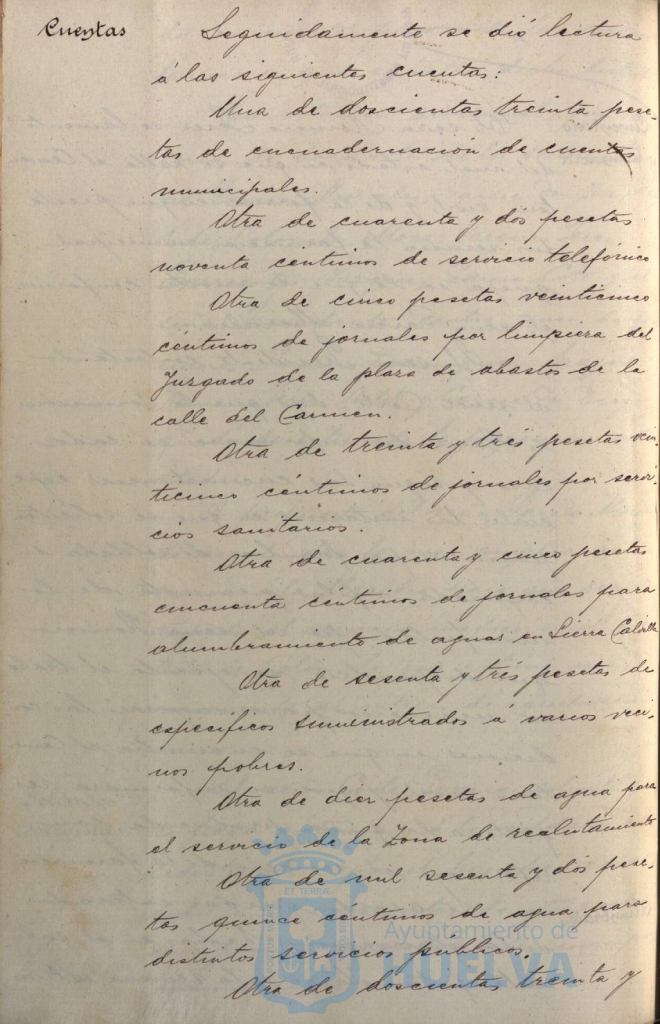 Cuentas
Seguidamente se dió lectura
á las siguientes cuentas:
Una de doscientas treinta pese-
tas de encuadernación de cuentas
municipales.
Otra de cuarenta y dós pesetas
noventa céntimos de servicio telefónico
Otra de cinco pesetas veinticinco
céntimos de jornales por limpiera del
Juzgado de la plaza de abastos de la
calle del Carmen.
Otra de treinta y trés pesetas vein-
ticinco céntimos de jornales por servi-
cios sanitarios.
Otra de cuarenta y cinco pesetas
cincuenta céntimos de jornales para
alumbramiento de aguas en Sierra
Otra de sesenta y trés pesetas de
específicos suministrados á varios veci-
nos pobres.
Otra de diez pesetas de agua para
el servicio de la Zona de reclutamiento
Otra de mil sesenta y dós pese-
tas quince céntimos de agua para
distintos servicios públicos.
Otra de doscientas treinta y
Ayuntamiento de
HUELVA